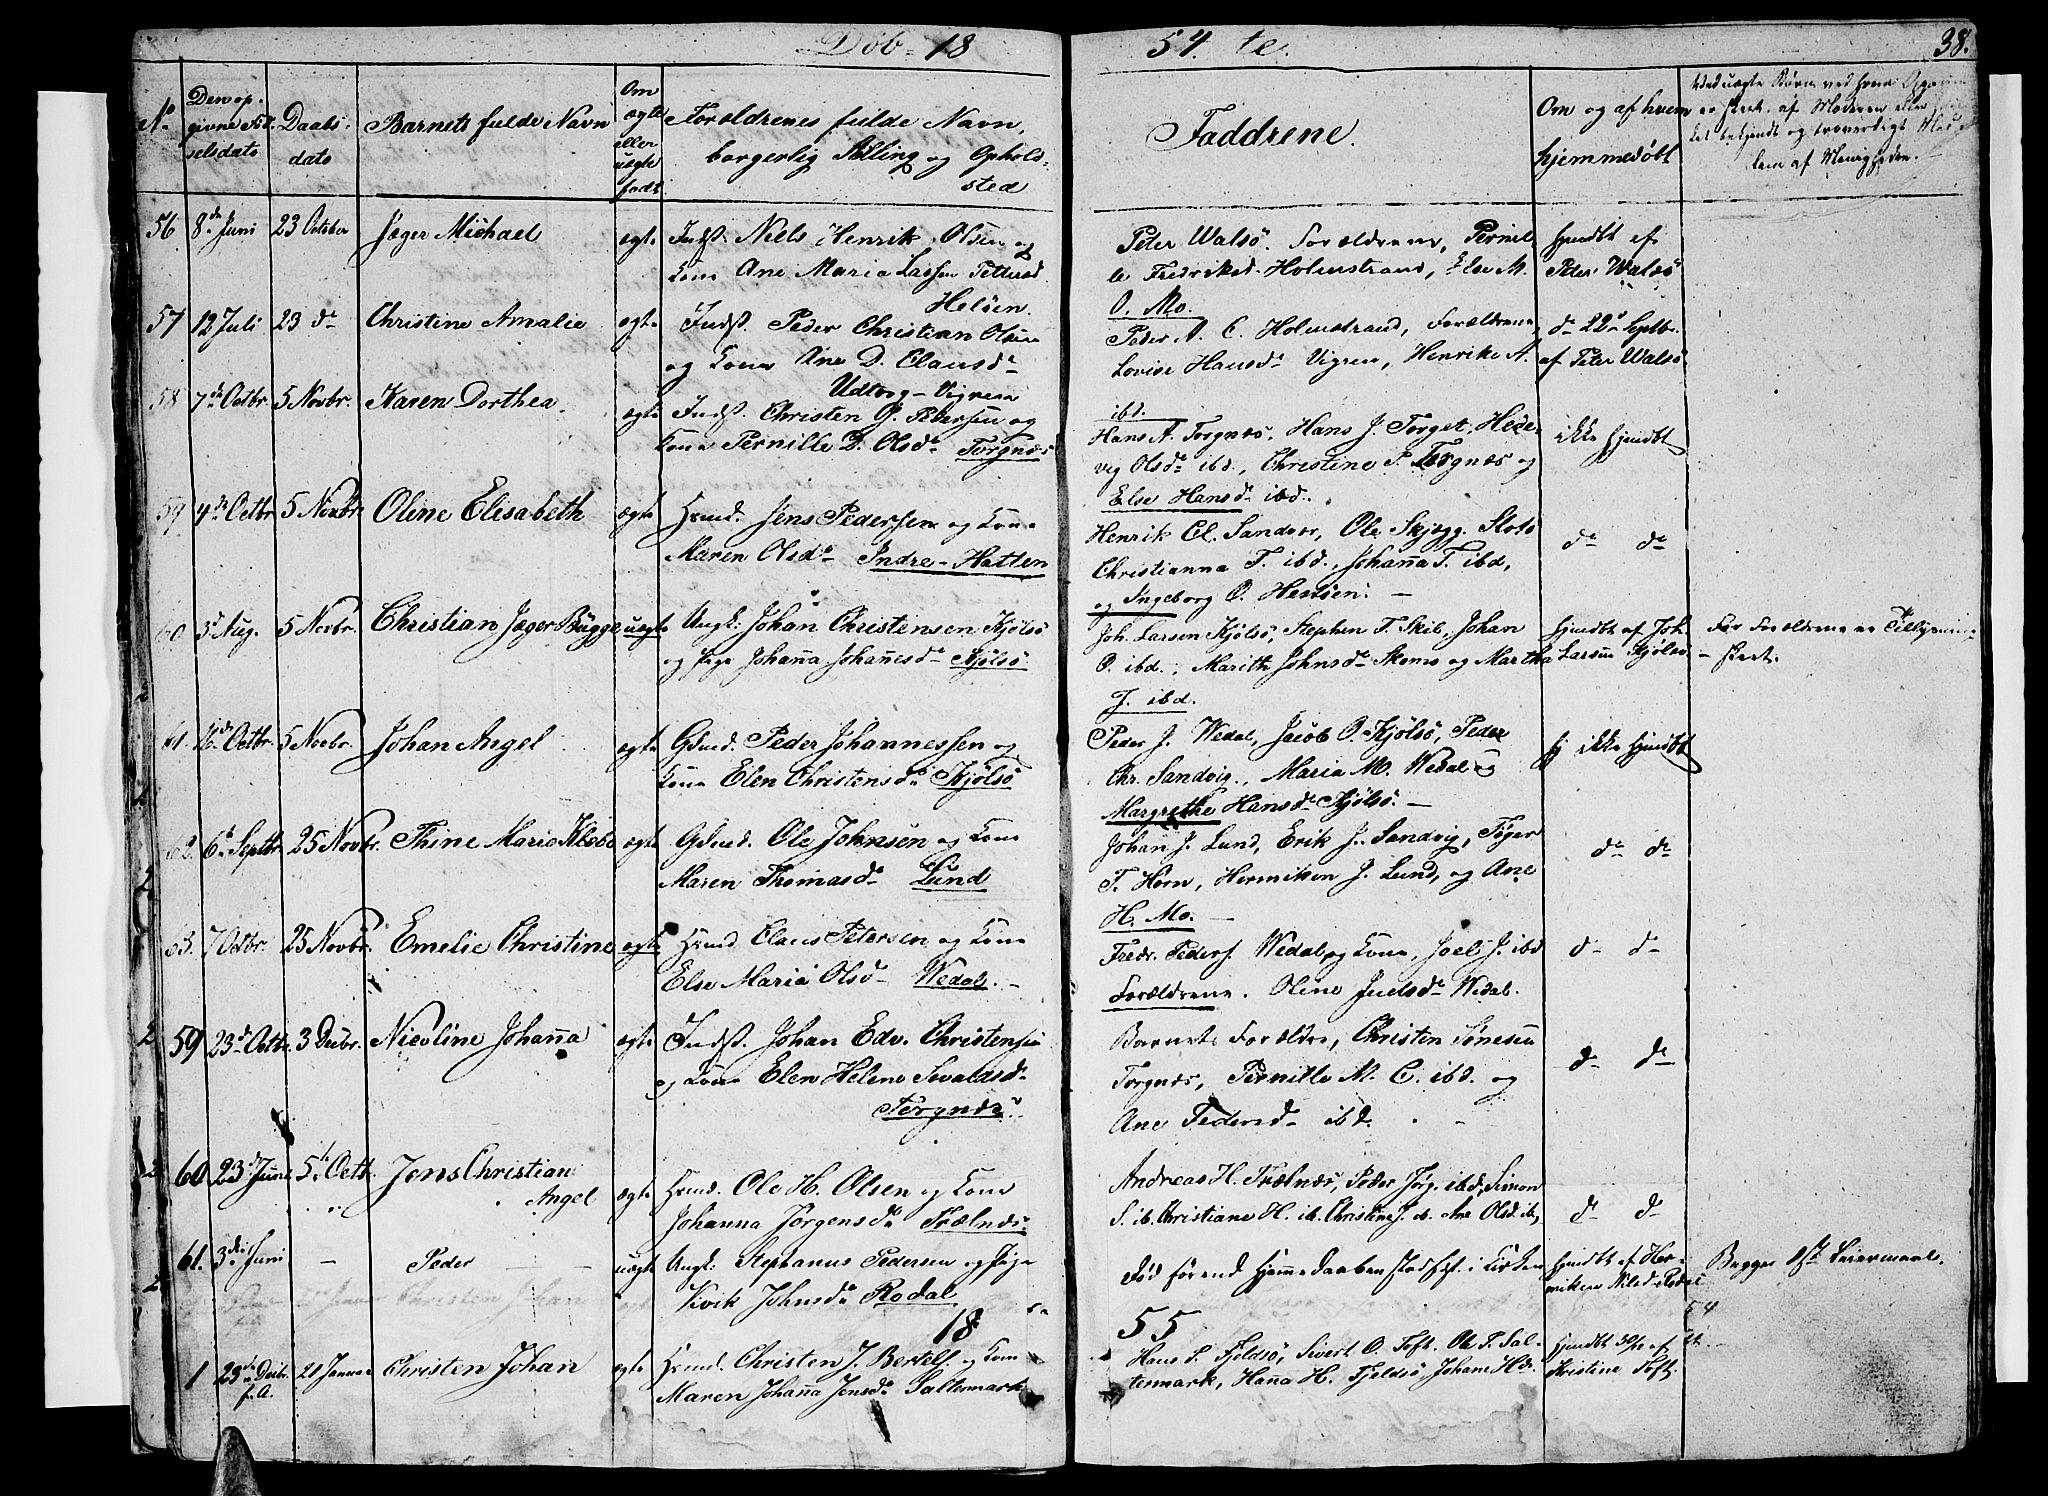 Döb- 18 54. te. 38.
No.
Den op.
givne Föd
selsdato
Daabs-
dato
Barnets fulde Navn
Om
ægte
eller
uægte
født
Forældrenes fulde Navn,
borgerlig Stilling og Ophold-
sted
Faddrene.
Om og af hvem
hjemmedøbt
Ved uægte Børn ved hvem
er skeet, af Moderen eller
bekjendt og troværdigt
lem af Menigheden.
56 8de Juni 23 October Jæger Michael ægte Indst. Niels Henrik Olsen og
Kone Ane Maria Larsen Pettersd
Helöen.
Peter Walsö. Forældrene, Pernil-
le Fredriksd. Holmstrand, Else M.
O. Mo.
hjmdbt af
Peter Walsö
57 12 Juli 23 de Christine Amalie ægte Indst. Peder Christian Olsen
og Kone Ane D. Clausde
Udtorg-Vigren
Peder A. C. Holmstrand, Forældrene
Lovise Hansde Vigren, Henrike A.
ibd.
de 22de Septbr.
af Peter Walsö
58 7de Octbr. 5 Novbr. Karen Dorthea. ægte Indst. Christen G. Petersen og
Kone Pernille D. Olsde Torgnæs
Hans A. Torgnæs, Hans J. Torget, Hede-
vig Olsde ibd., Christine P. Torgnæs og
Else Hansde ibd.
ikke hjmdbt
59 4de Octbr 5 Novbr. Oline Elisabeth ægte Hsmd. Jens Pedersen og Kone
Maren Olsde Indre-Hatten
Henrik Cl. Sandvær, Ole Skjegg. Slots
Christianna T. ibd., Johanna T. ibd,
og Ingeborg O. Hestöen. —
de de
60 3d Aug. 5 Novbr. Christian Jæger Bugge uægte Ungk: Johan Christensen Kjölsö
og Pige Johanna Johannesde Kjölsö
Joh. Larsen Kjölsö, Stephen T. Skib, Johan
O. ibd., Marith Johnsde Moms og Martha
J. ibd.
hjmdbt af Joh.
Larsen Kjölsö.
Før Forældrene er
- skeet.
61. 16de Octbr. 5 Novbr. Johan Angel ægte Gdmd. Peder Johannessen og
Kone Elen Christensde Kjölsö
Peder J. Wedal, Jacob O. Kjölsö, Peder
Chr. Sandvig., Maria M. Wedal og
Margrethe Hansde Kjölsö. —
ikke hjmdbt
62. 6te Septbr. 25 Novbr. Thine Marie Klebo ægte Gdmd. Ole Johnsen og Kone
Maren Thomasde Lund
Johan J. Lund, Erik J. Sandvig, Töger
T. Horn, Hermiken J. Lund, og Ane
H. Mo. —
de de
63. 7 Octbr. 25 Novbr. Emelie Christine ægte Hsmd Claus Petersen og Kone
Else Maria Olsd- Wedal. -
Fredr. Peders. Wedal, og Kone, Joel J. ibd
Forældrene. Oline Juelsde Wedal.
d- d-
59 23de Octbr. 3 Decbr. Nicoline Johanna ægte Indst. Johan Edv. Christensen
og Kone Elen Helene Sivaldsde
Torgnæs.
Barnets Forældre, Christen Sönesen
Torgnæs, Pernille M. C. ibd. og
Ane Pedersd- ibd. -
de de
60 23de June 5te Octb. Jens Christian
Angel
ægte Hsmd. Ole H. Olsen og Kone
Johanna Jörgensde Trælnæs
Andreas H. Trælnæs, Peder Jörg. ibd, Simon
S. ib. Christiane H. ib. Christine J. ib. Ane Olsd. ib,
de de
61. 3die Juni — Peder — uægte Ungk: Stephanus Pedersen og Pige
Kivik Johnsde Rodal
Död förend Hjemmedaaben stadfæst. i Kirken
hjmdbt af Her-
miken Nilsd. Rodal
Begges 1ste Leiermaal.
18 55
1 29de Decbr.
f. A.
21 Januar Christen Johan ægte Hsmd. Christen J. Bertels. og Kone
Maren Johanna Jensde Saltermark
Hans P. Fjeldsö, Sivert O. Toft. Ole P. Sal-
termark, Hana H. Fjeldsö, Johane Hd.
hjmdbt 30/12 af
Christine Toft.
54